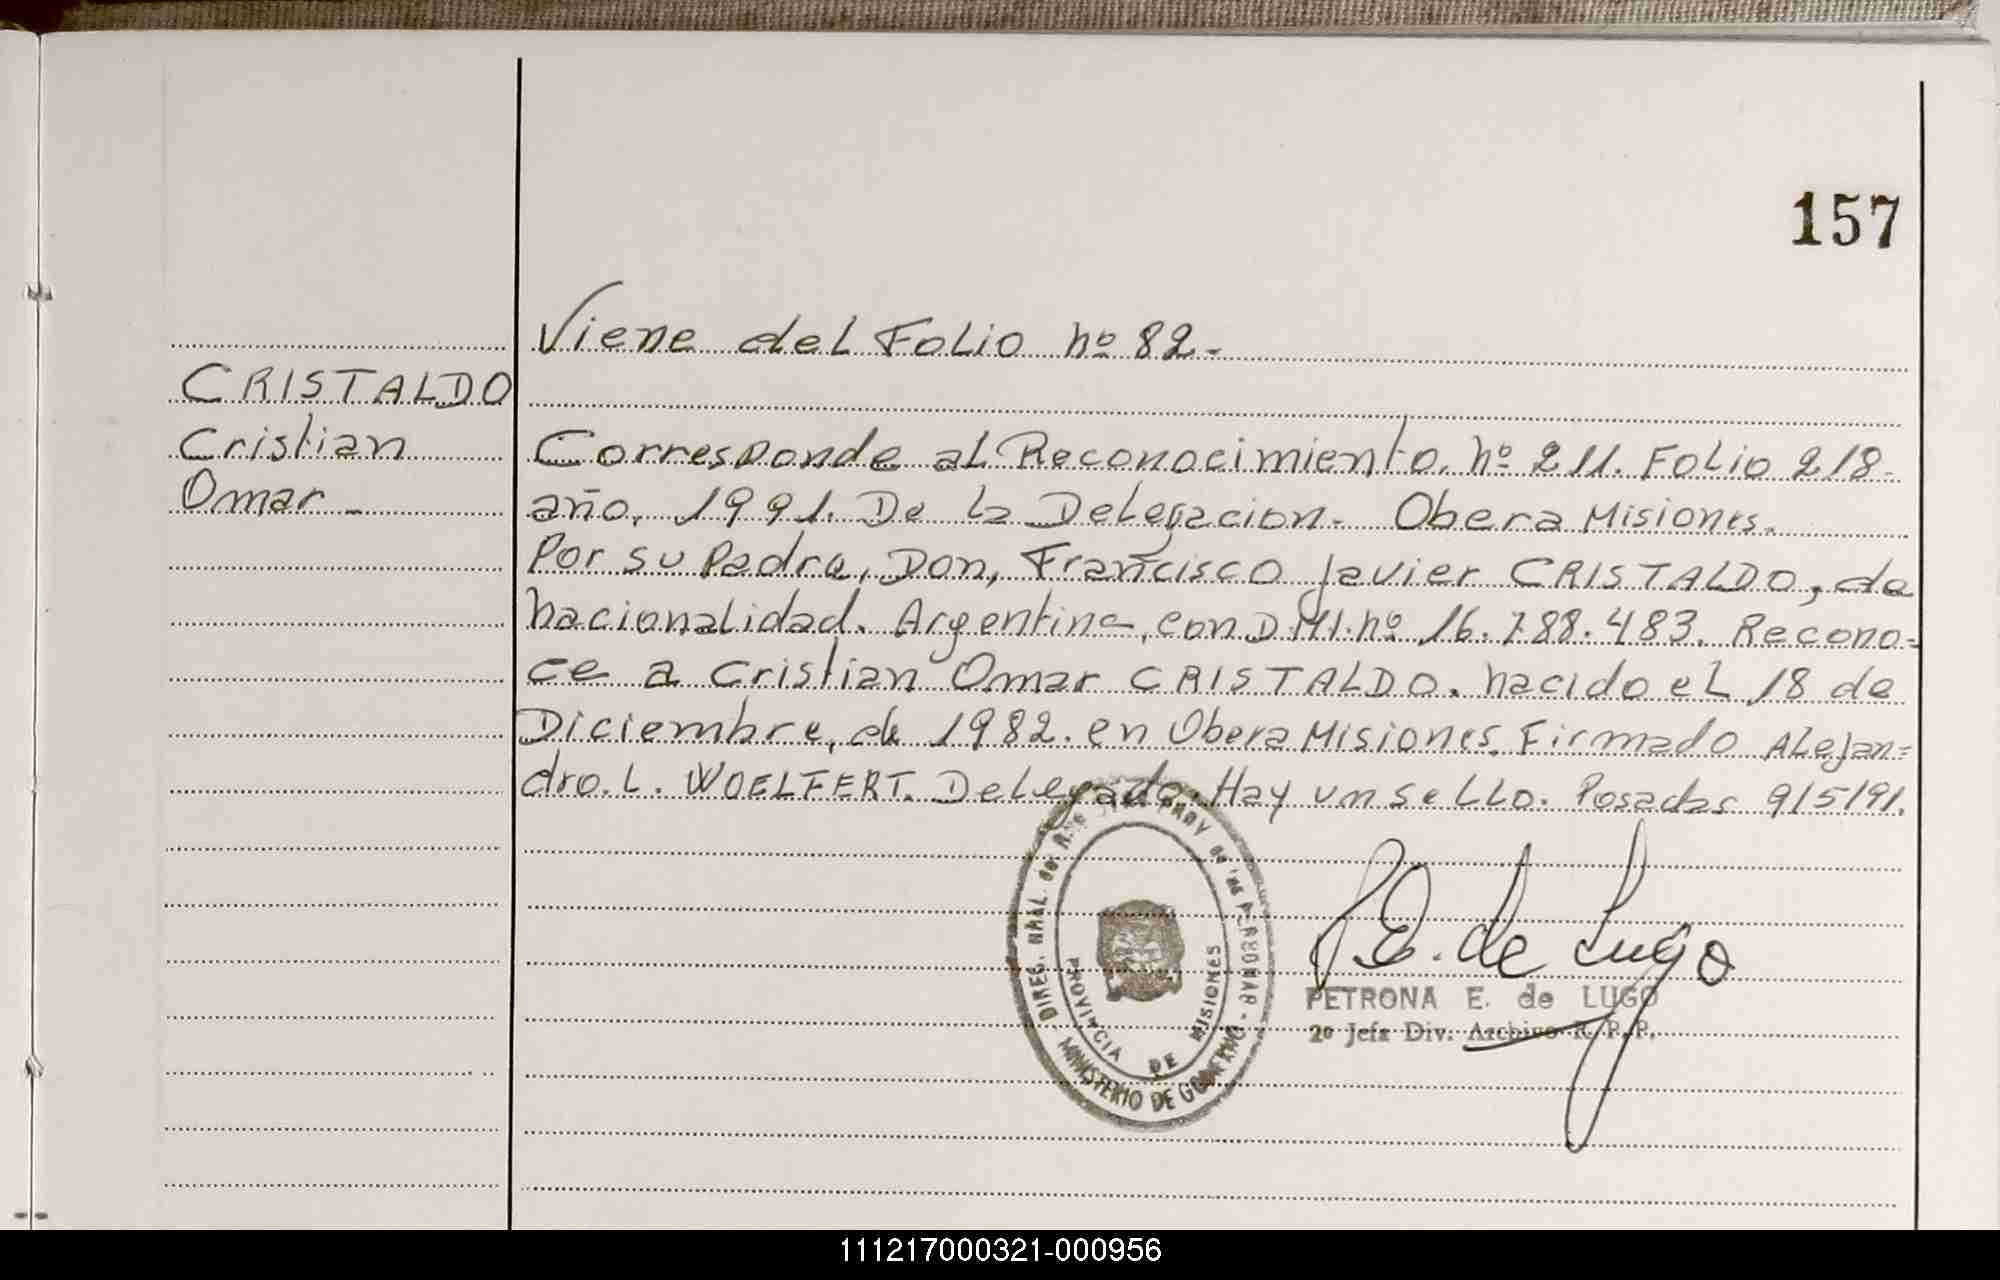 157
Viene del Folio nº 82.
CRISTALDO
Cristian
Omar
Corresponde al Reconocimiento. nº 211. Folio 218.
año. 1991. De la Delegacion. Obera Misiones.
Por su Padre, Don, Francisco Javier CRISTALDO, de
nacionalidad. Argentina, con D.M.I. nº 16.788.483. Recono=
ce a Cristian Omar CRISTALDO. nacido el 18 de
Diciembre, de 1982. en Obera Misiones. Firmado Alejan=
dro. L. WOELFERT. Delegado. Hay un sello. Posadas 9/5/91.
DIREG. NRAL. del PROV de las PERSONAS - MINISTERIO DE GOBIERNO
PROVINCIA DE MISIONES
P.E. de Lugo
PETRONA E. de LUGO
2º Jefa Div. Archivo R. P. P.
111217000321-000956